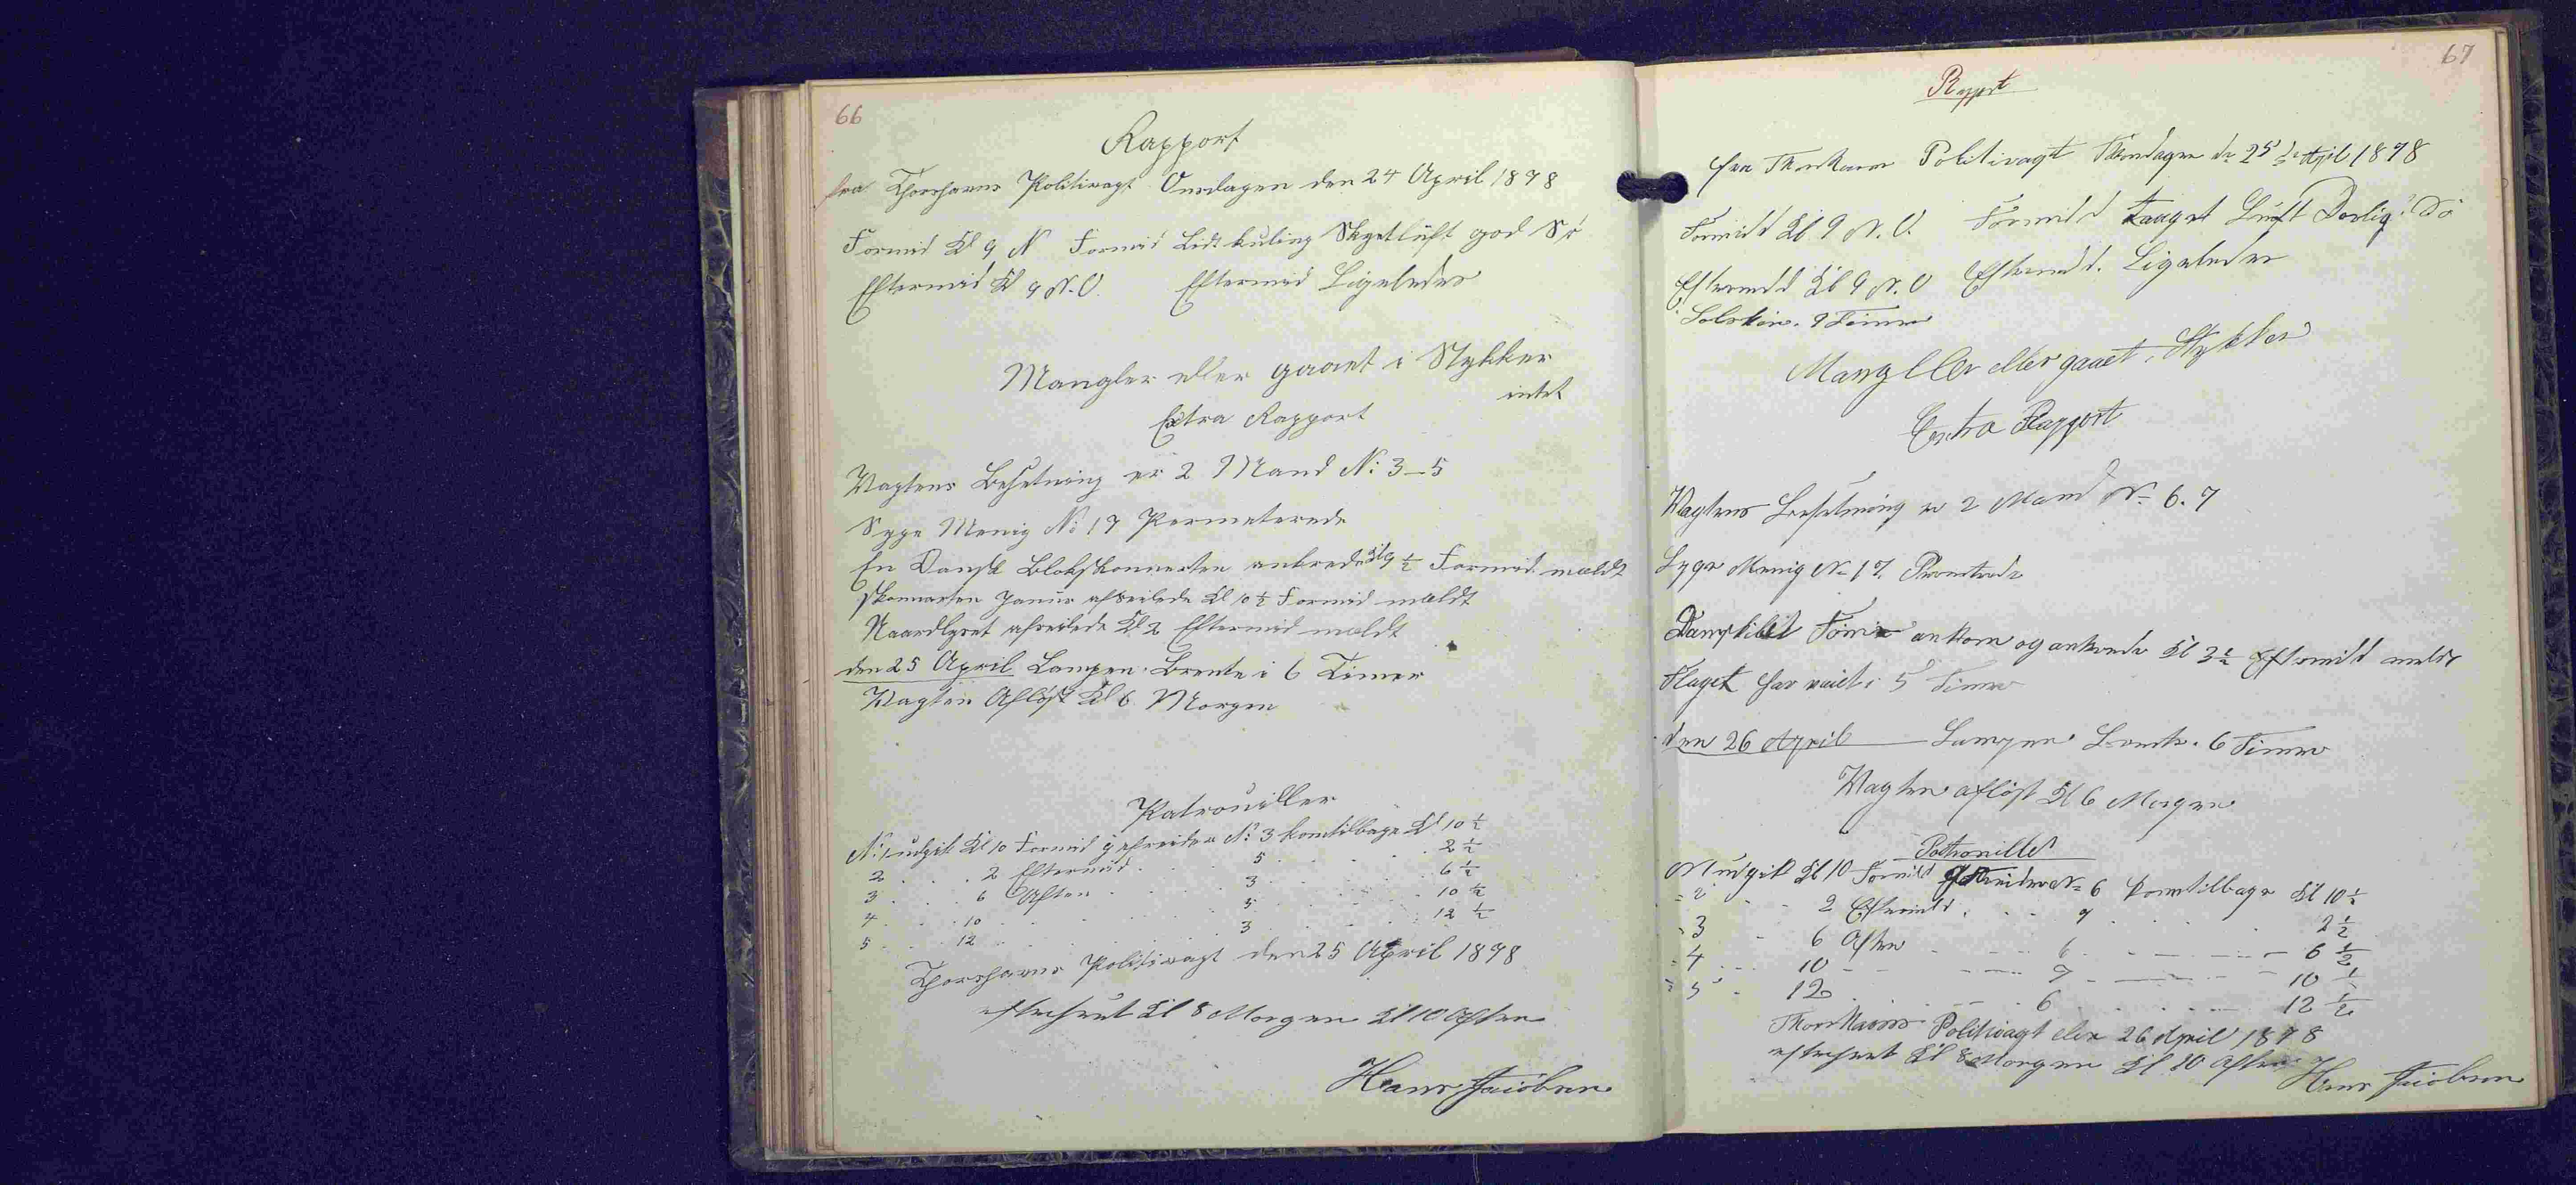 66
Rapport
fra Thorshavns Politivagt Onsdagen den 24 April 1878
Formid Kl 9 N Formid Lidt kuling Skyetluft god Sø
Eftermid Kl 9 N.O. Eftermid Ligeledes
Mangler eller gaaet i Stykker
intet
Extra Rapport
Vagtens Besetning er 2 Mand N: 3-5
Syge Menig No 17 Permeterede
En Dansk Skonnerten ankrede Kl 9 1/2 Formid. meldt
Skonnerten afseilede Kl 10 1/2 Formid meldt
afseilede Kl 2 Eftermid meldt
den 25 April Lampen Brente i 6 Timer
Vagten Afløst Kl 6 Morgen
Patrouiller
N: 1 udgik Kl 10 Formid gefreider No 3 kom tilbage Kl 10 1/2
2 . . . 2 Eftermid . . 5 . . . . 2 1/2
3 . . . 6 Aften . . . 3 . . . . 6 1/2
4 . . . 10 . . . . 5 . . . . 10 1/2
5 . . . 12 . . . . 3 . . . . 12 1/2
Thorshavns Politivagt den 25 April 1878
efterseet Kl 8 Morgen Kl 10 Aften
Hans Jacobsen
67
Rapport
fra Thorshavns Politivagt Thorsdagen dn 25de April 1878
Formidd Kl 9 N.O. Formidd Taaget Luft Dorlig Sö
Eftermidd Kl 9 N.O Eftermidd. Ligeledes
Solskin. 9 Timer
Mangller eller gaaet i Stykker
Extra Rapport
Vagtens Besetning er 2 Mand No 6. 7
Syge Menig No 17. Permeterede
Dampskibet ankom og ankrede Kl 3 1/2 Eftermidd meldt
Flaget har vaiet i 5 Timer
den 26 April Lampen Brente. 6 Timer
Vagten afløst Kl 6 Morgen
Patrouiller
N 1 udgik Kl 10 Formidd gefreider No 6 kom tilbage Kl 10 1/2
" 2 - - 2 Eftermidd . . . 7 . . . 2 1/2
" 3 - 6 Aften - - - 6 - - - 6 1/2
" 4 - - 10 - - - 7 - - - 10 1/2
" 5 - 12 . . - - 6 . . - 12 1/2
Thorshavns Politivagt den 26 April 1878
efterseet Kl 8 Morgen Kl 10 Aften
Hans Jacobsen